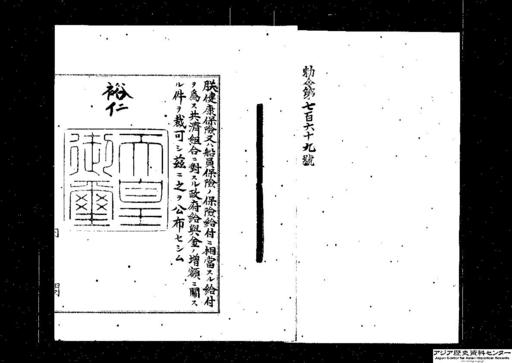 勅令第七百六十九號
朕健康保險又ハ船員保險ノ保險給付ニ相當スル給付
ヲ爲ス共濟組合ニ對スル政府給與金ノ增額ニ關ス
ル件ヲ裁可シ茲ニ之ヲ公布セシム
裕仁
天皇
御璽
アジア歴史資料センター
Japan Center for Asian Historical Records